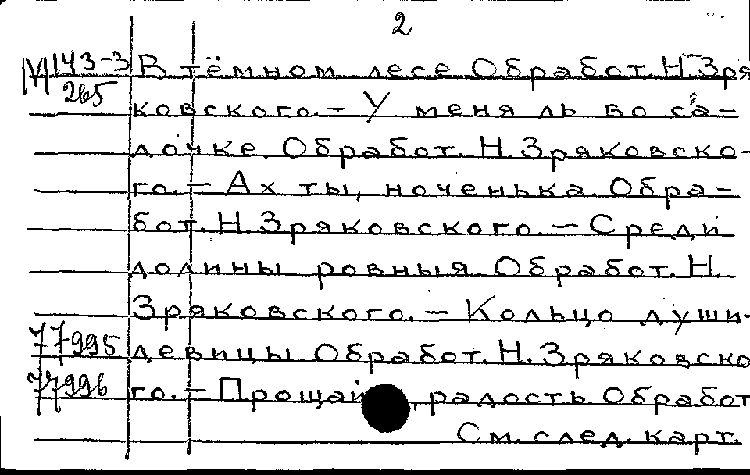 2
М 143-3 В тёмном лесе Обработ. Н. Зря
265 ковского. – У меня ль во са-
дочке Обработ. Н. Зряковско-
го. – Ах ты, ноченька Обра-
бот. Н. Зряковского. – Среди
долины ровныя Обработ. Н.
Зряковского. – Кольцо души-
77995 девицы Обработ. Н. Зряковско
77996 го. – Прощай, радость Обработ
См. след. карт.